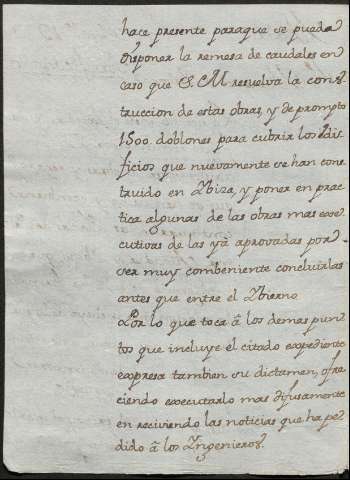 hace presente paraque se pueda
disponer la remesa de caudales en
caso que S. M resuelva la cons
truccion de estas obras, y de prompto
1500. doblones para cubrir los edi
ficios que nuevamente se han cons
truido en Ybiza, y poner en prac
tica algunas de las obras mas exe
cutivas de las yá aprovadas por
ser muy combeniente concluirlas
antes que entre el Ybierno
Por lo que toca â los demas pun
tos que incluye el citado expediente
expresa tambien su dictamen, ofre
ciendo executarlo mas difusamente
en reciviendo las noticias que ha pe
dido â los Yngenieros.